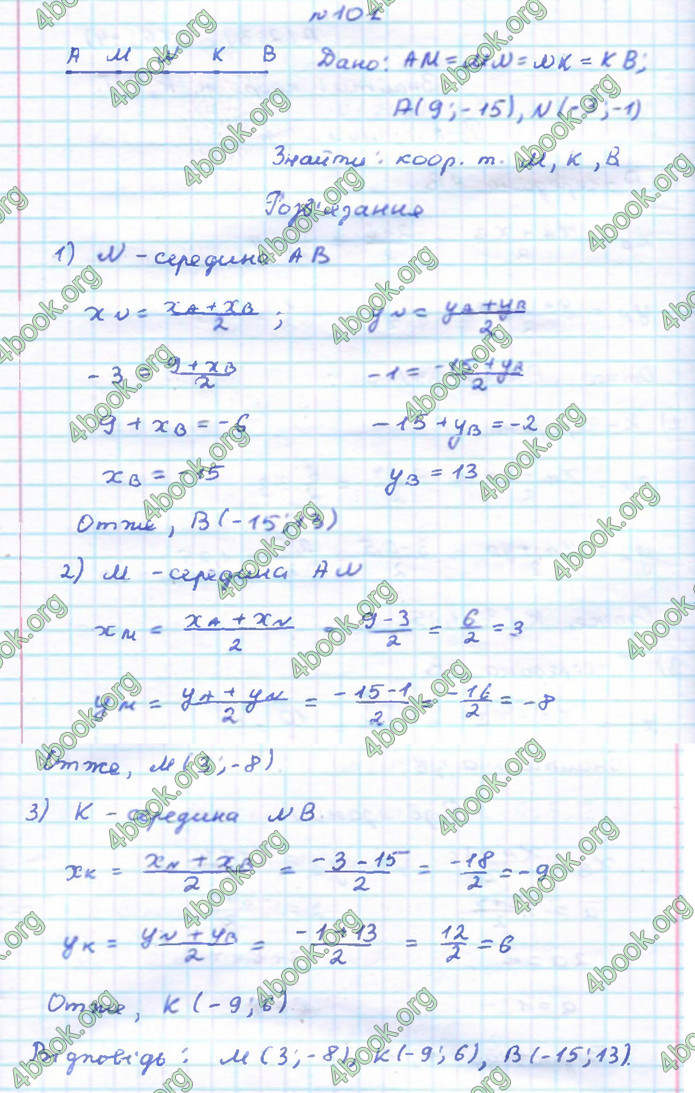 № 101
A M N K B Дано: AM = MN = NK = KB;
A(9; -15), N(-3; -1)
Знайти: коор. т. M, K, B
Розв'язання
1) N - середина AB
x_N = (x_A + x_B)/2 ; y_N = (y_A + y_B)/2
-3 = (9 + x_B)/2 -1 = (-15 + y_B)/2
9 + x_B = -6 -15 + y_B = -2
x_B = -15 y_B = 13
Отже, B(-15; 13)
2) M - середина AN
x_M = (x_A + x_N)/2 = (9 - 3)/2 = 6/2 = 3
y_M = (y_A + y_N)/2 = (-15 - 1)/2 = -16/2 = -8
Отже, M(3; -8).
3) K - середина NB
x_K = (x_N + x_B)/2 = (-3 - 15)/2 = -18/2 = -9
y_K = (y_N + y_B)/2 = (-1 + 13)/2 = 12/2 = 6
Отже, K(-9; 6)
Відповідь: M(3; -8), K(-9; 6), B(-15; 13).
4book.org